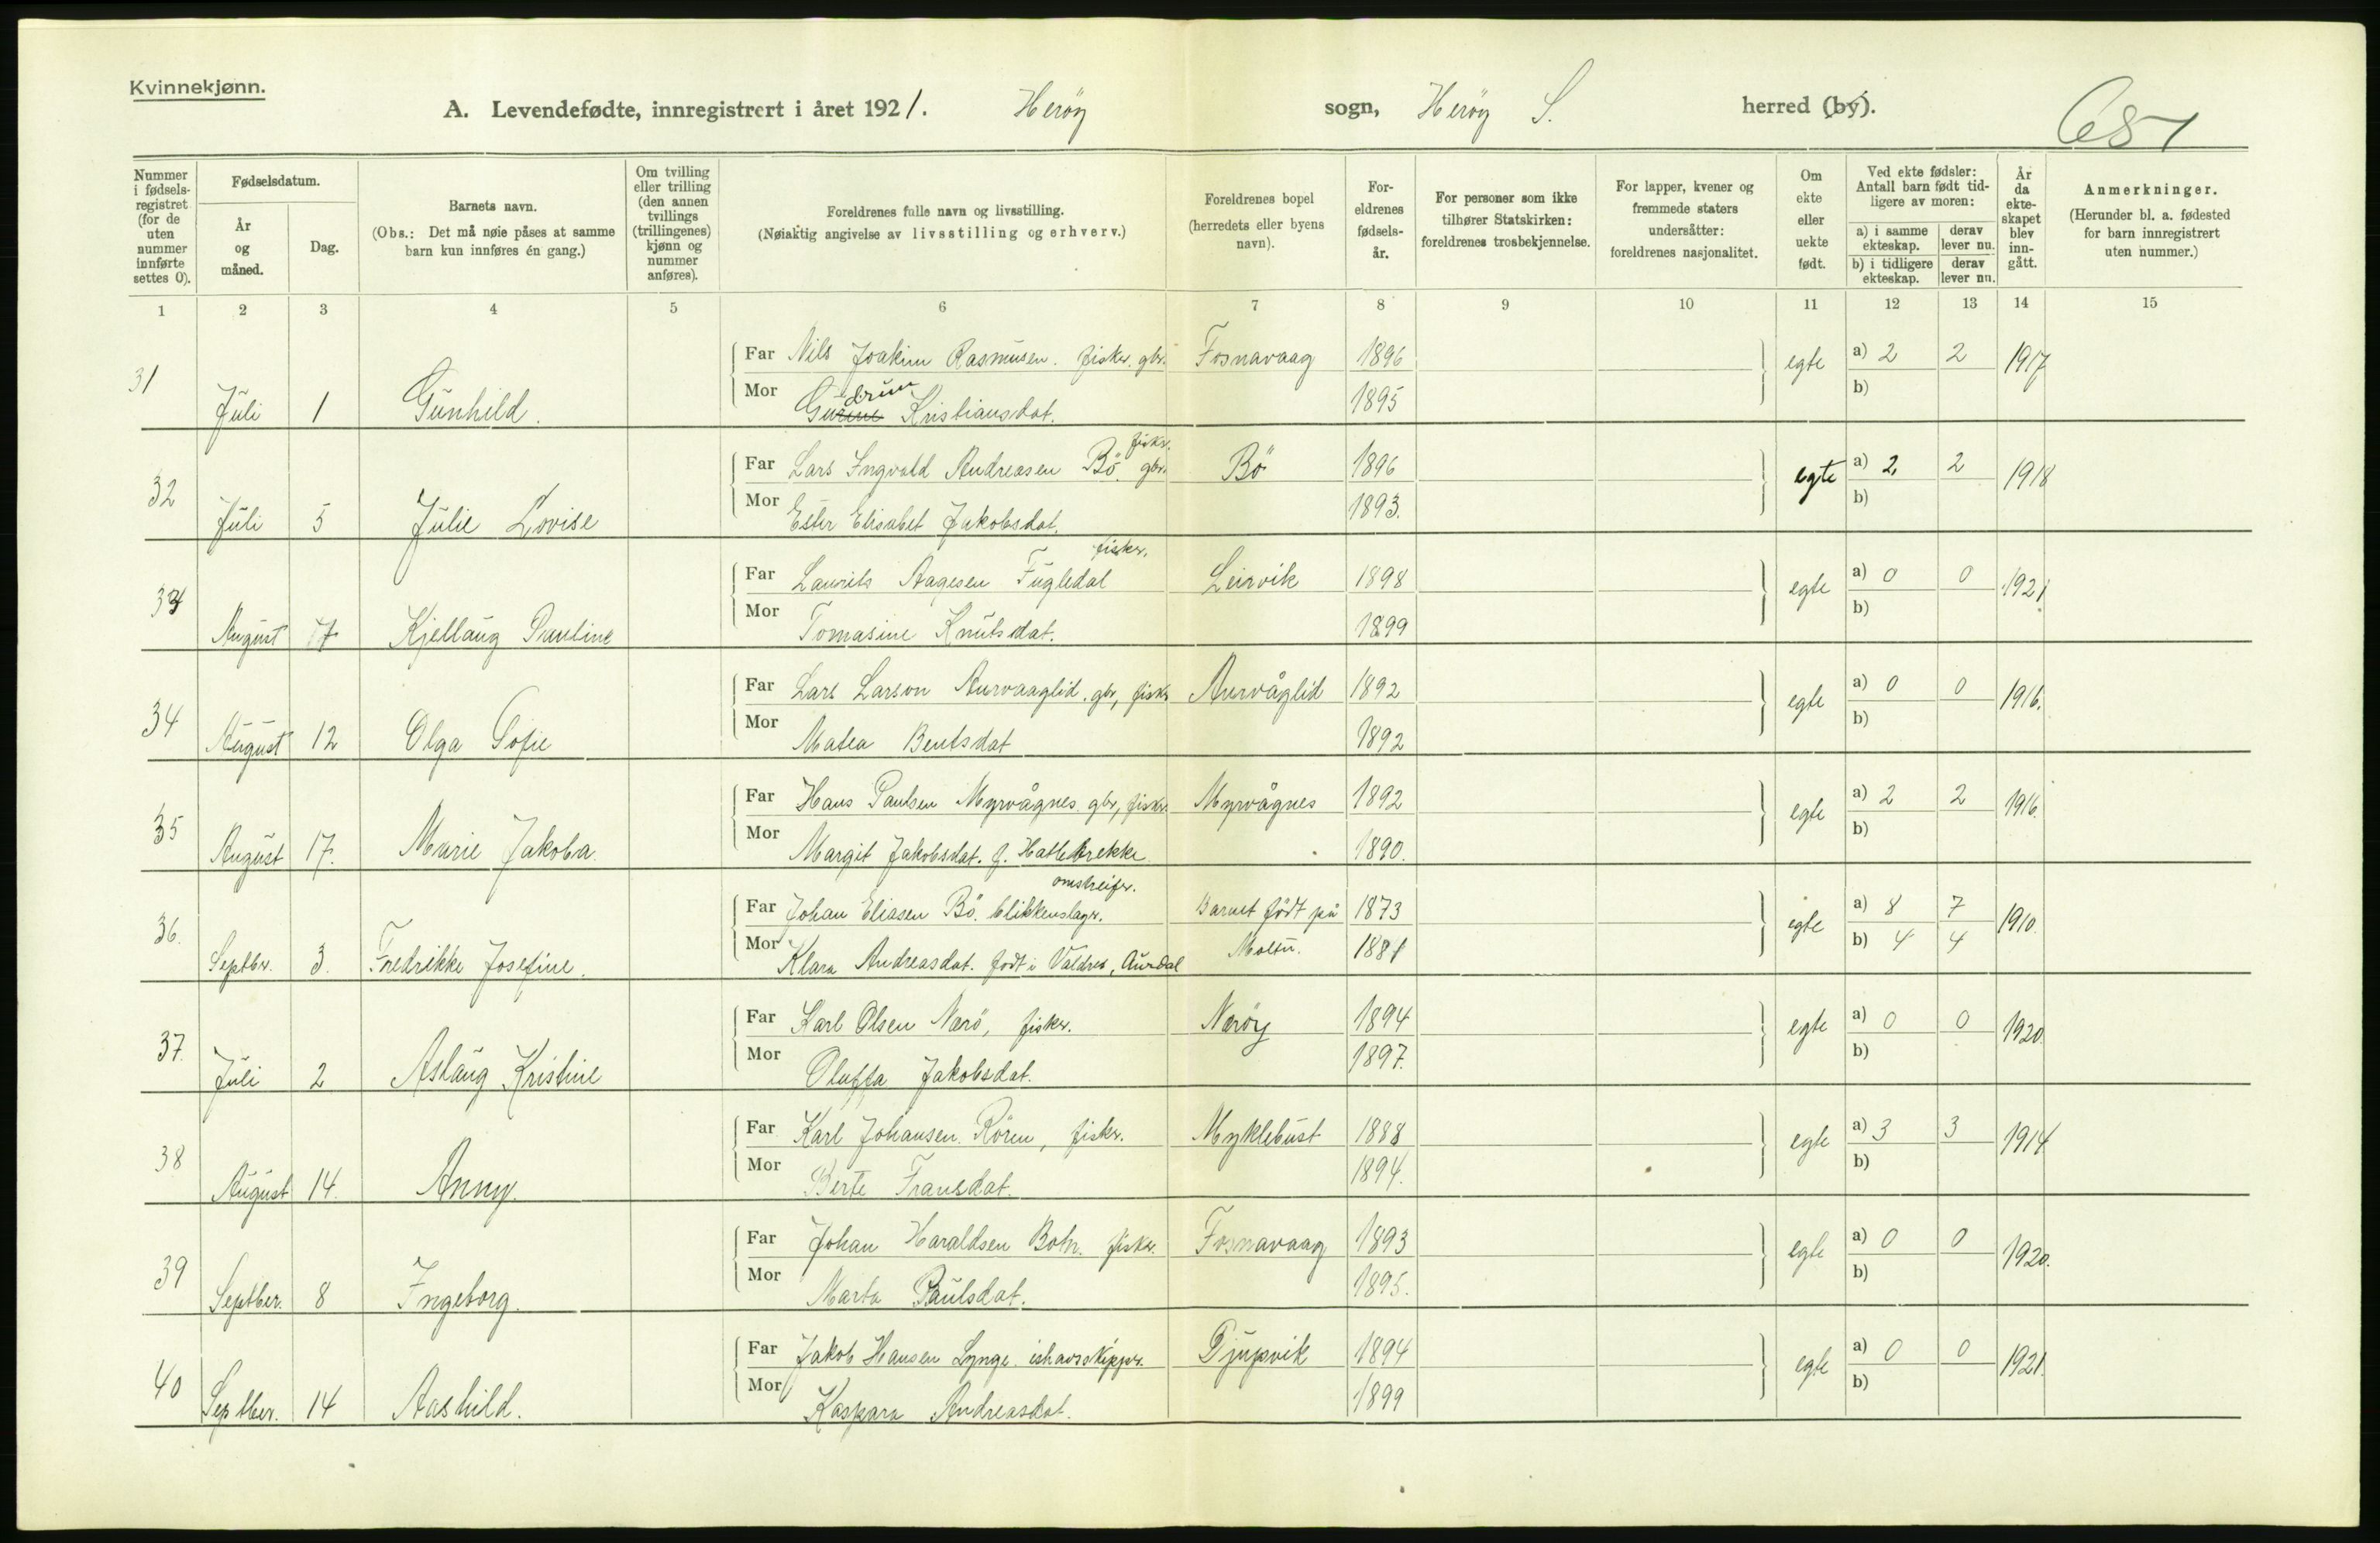 Kvinnekjønn.
A. Levendefødte, innregistrert i året 1921. Herøy sogn, Herøy S. herred (by). 681
Nummer i fødsels-registret (for de uten nummer innførte settes 0).
Fødselsdatum.
År og måned.
Dag.
Barnets navn.
(Obs.: Det må nøie påses at samme barn kun innføres én gang.)
Om tvilling eller trilling (den annen tvillings (trillingenes) kjønn og nummer anføres).
Foreldrenes fulle navn og livsstilling.
(Nøiaktig angivelse av livsstilling og erhverv.)
Foreldrenes bopel (herredets eller byens navn).
For-eldrenes fødsels-år.
For personer som ikke tilhører Statskirken: foreldrenes trosbekjennelse.
For lapper, kvener og fremmede staters undersåtter: foreldrenes nasjonalitet.
Om ekte eller uekte født.
Ved ekte fødsler: Antall barn født tid-ligere av moren:
a) i samme ekteskap. derav lever nu.
b) i tidligere ekteskap. derav lever nu.
År da ekte-skapet blev inn-gått.
Anmerkninger.
(Herunder bl. a. fødested for barn innregistrert uten nummer.)
1 2 3 4 5 6 7 8 9 10 11 12 13 14 15
Far Nils Joakim Rasmusen. fisker. gbr. Fosnavaag 1896 egte a) 2 2 1917
31 Juli 1 Gunhild. Mor Gurine drun Kristiansdat. 1895 b)
Far Lars Ingvald Andreasen Bö. gbr. fisker. Bö 1896 egte a) 2 2 1918
32 Juli 5 Julie Lovise Mor Ester Elisabet Jakobsdat. 1893. b)
Far Laurits Aagesen Fugledal fisker. Leirvik 1898 egte a) 0 0 1921
33 August 17 Kjellaug Pauline Mor Tomasine Knutsdat. 1899 b)
Far Lars Larson Aurvaaglid. gbr, fisker Aurvåglid 1892 egte a) 0 0 1916.
34 August 12 Olga Sofie Mor Matea Bentsdat 1892 b)
Far Hans Paulsen Myrvågnes. gbr, fisker. Myrvågnes 1892 egte a) 2 2 1916.
35 August 17. Marie Jakoba. Mor Margit Jakobsdat. f. Hatlebrekke 1890. b)
Far Johan Eliasen Bö. blikkenslager. omstreifer. Barnet födt på 1873 egte a) 8 7 1910.
36. Septbr. 3. Fredrikke Josefine. Mor Klara Andreasdat. fodt i Valdres, Aurdal Moltu. 1881 b) 4 4
Far Karl Olsen Nerö, fisker. Neröy 1894 egte a) 0 0 1920.
37. Juli 2 Aslaug Kristine Mor Oluffa Jakobsdat. 1897. b)
Far Karl Johansen. Rören, fisker. Myklebust 1888 egte a) 3 3 1914
38 August 14. Anny. Mor Berte Fransdat. 1894. b)
Far Johan Haraldsen Botn. fisker. Fosnavaag 1893 egte a) 0 0 1920.
39 Septber. 8 Ingeborg. Mor Marta Paulsdat. 1895. b)
Far Jakob Hansen Lynge. ishavsskipper. Djupvik 1894 egte a) 0 0 1921.
40 Septber. 14 Aashild. Mor Kaspara Andreasdat. 1899 b)